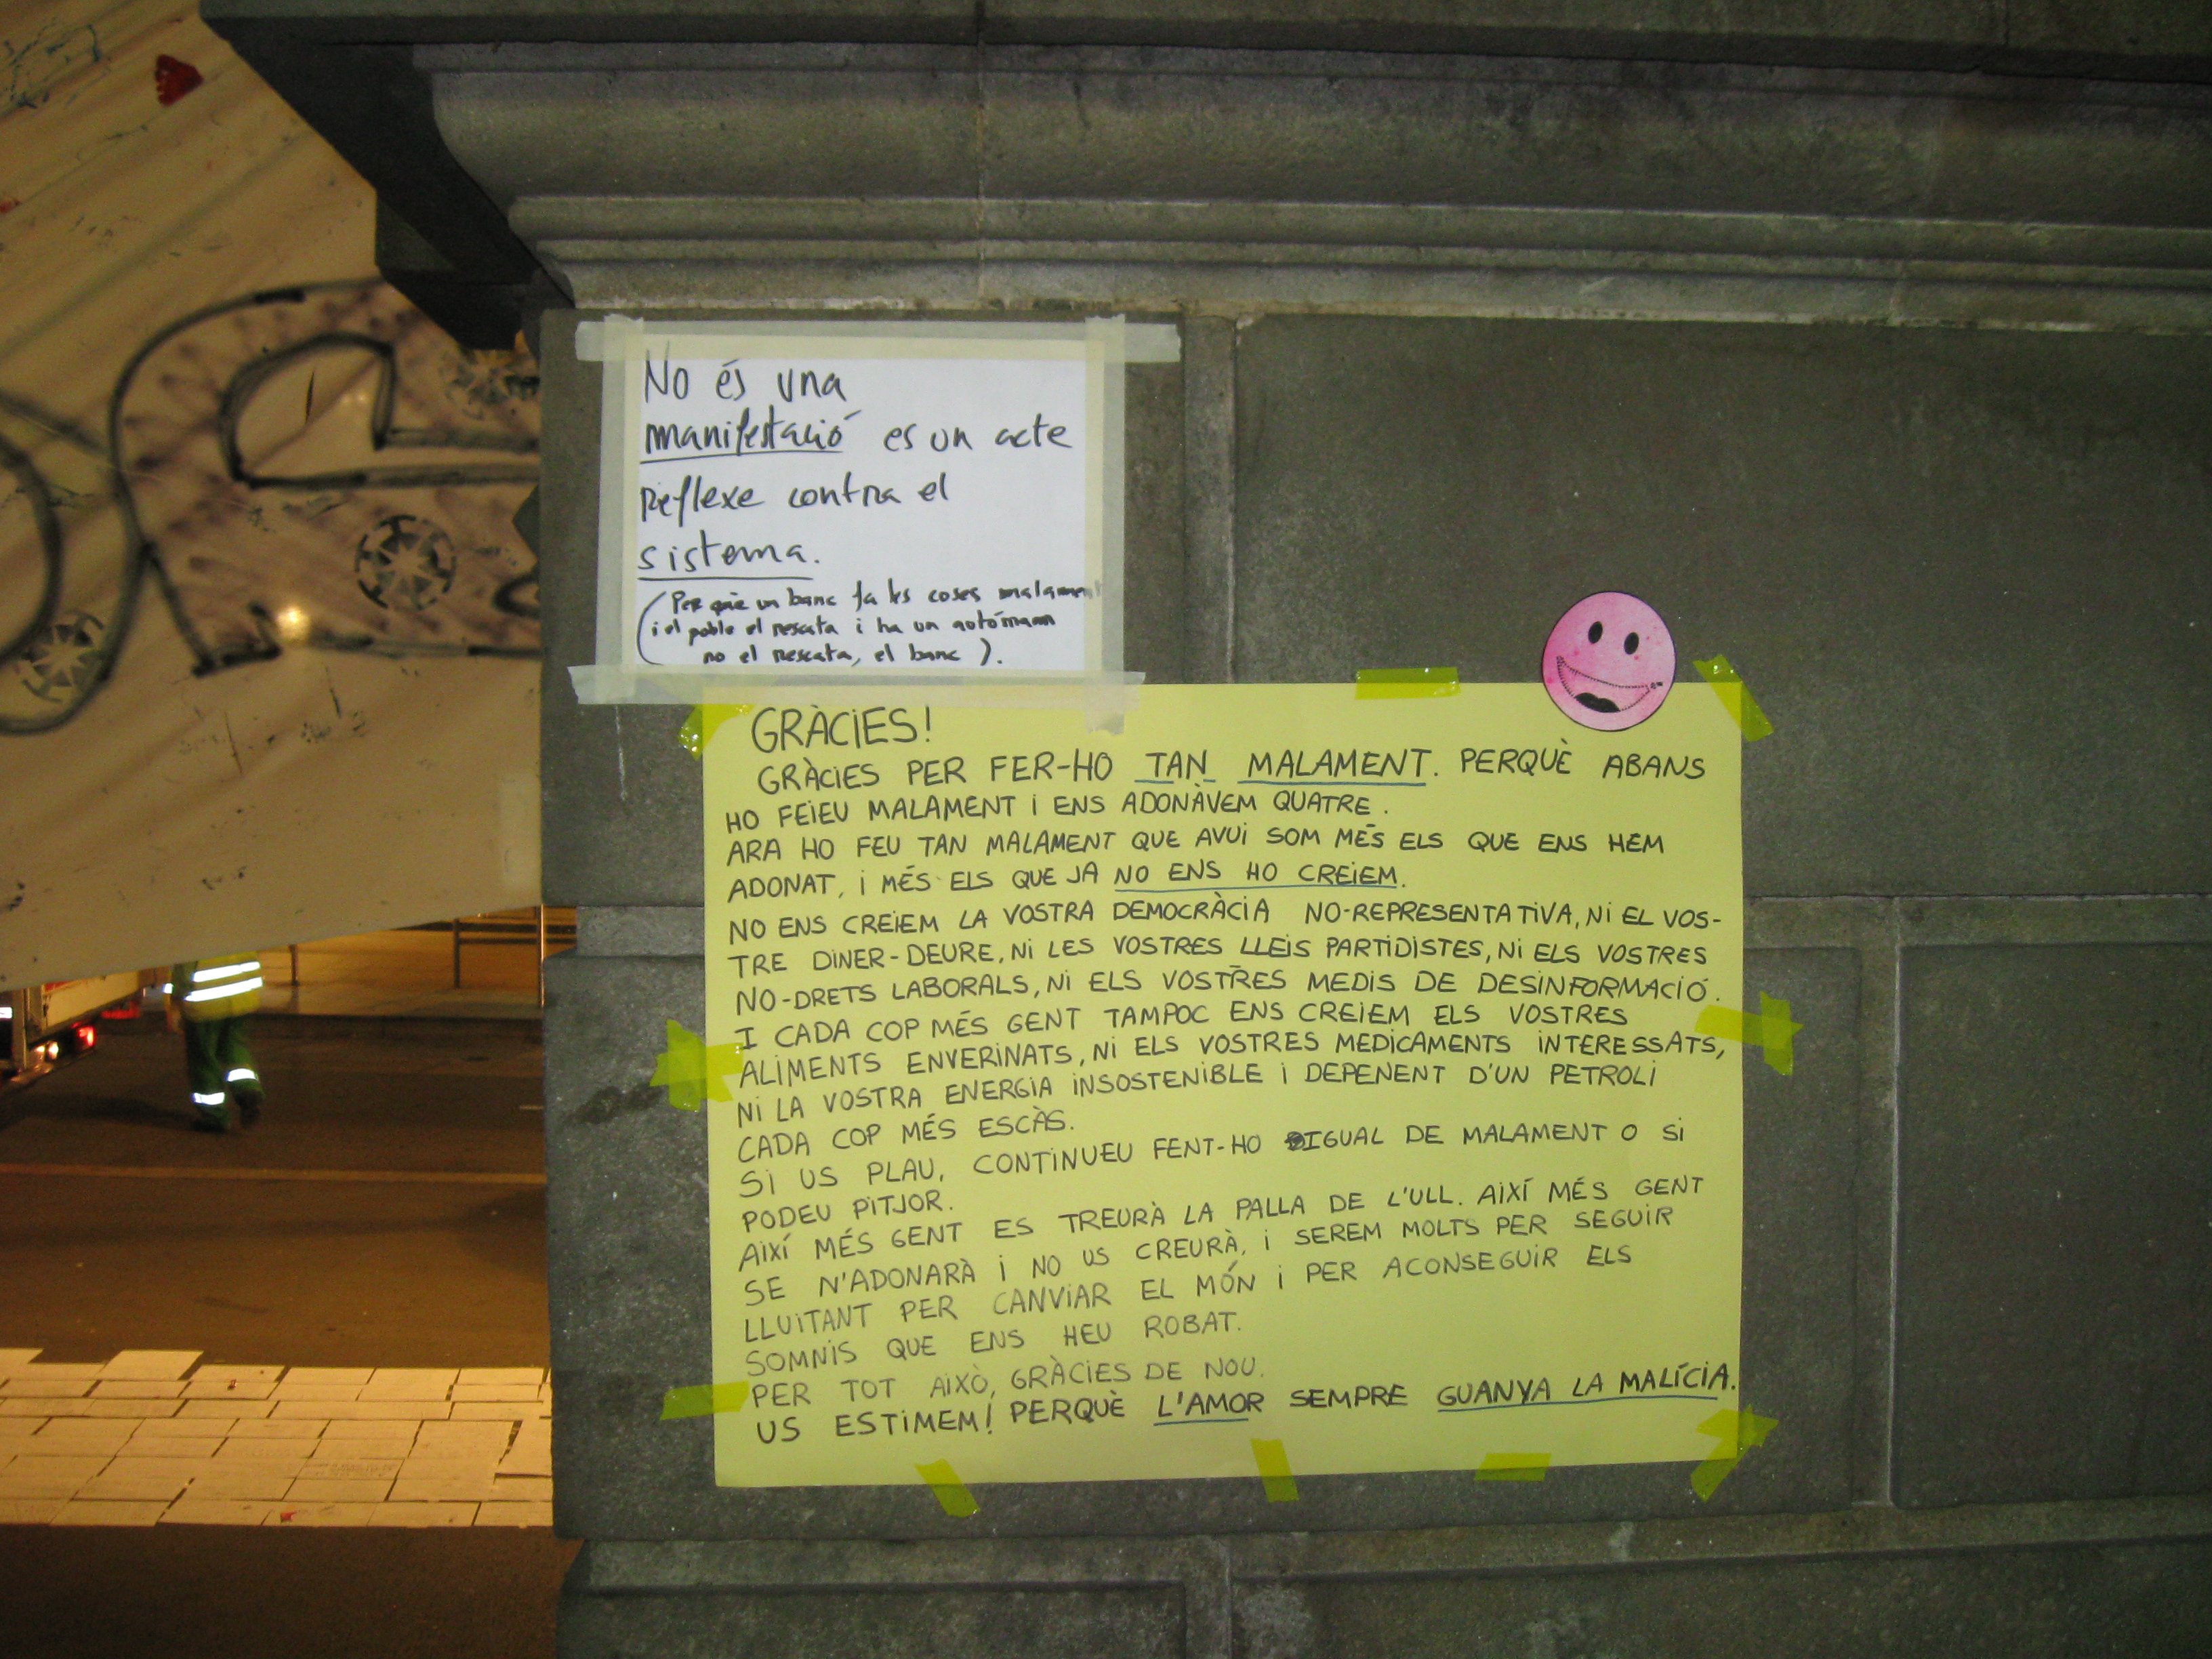 No és una
manifestació es un acte
reflexe contra el
sistema.
(Per què un banc fa les coses malament
i el poble el rescata i ha un autónom
no el rescata, el banc).
GRÀCIES!
GRÀCIES PER FER-HO TAN MALAMENT. PERQUÈ ABANS
HO FEIEU MALAMENT I ENS ADONÀVEM QUATRE.
ARA HO FEU TAN MALAMENT QUE AVUI SOM MÉS ELS QUE ENS HEM
ADONAT, I MÉS ELS QUE JA NO ENS HO CREIEM.
NO ENS CREIEM LA VOSTRA DEMOCRÀCIA NO-REPRESENTATIVA, NI EL VOS-
TRE DINER-DEURE, NI LES VOSTRES LLEIS PARTIDISTES, NI ELS VOSTRES
NO-DRETS LABORALS, NI ELS VOSTRES MEDIS DE DESINFORMACIÓ.
I CADA COP MÉS GENT TAMPOC ENS CREIEM ELS VOSTRES
ALIMENTS ENVERINATS, NI ELS VOSTRES MEDICAMENTS INTERESSATS,
NI LA VOSTRA ENERGIA INSOSTENIBLE I DEPENENT D'UN PETROLI
CADA COP MÉS ESCÀS.
SI US PLAU, CONTINUEU FENT-HO IGUAL DE MALAMENT O SI
PODEU PITJOR.
AIXÍ MÉS GENT ES TREURÀ LA PALLA DE L'ULL. AIXÍ MÉS GENT
SE N'ADONARÀ I NO US CREURÀ, I SEREM MOLTS PER SEGUIR
LLUITANT PER CANVIAR EL MÓN I PER ACONSEGUIR ELS
SOMNIS QUE ENS HEU ROBAT.
PER TOT AIXÒ, GRÀCIES DE NOU.
US ESTIMEM! PERQUÈ L'AMOR SEMPRE GUANYA LA MALÍCIA.